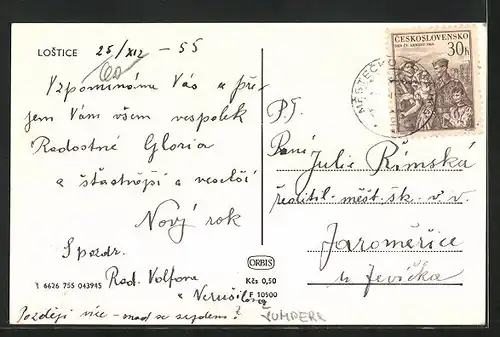 LOŠTICE 25/XII - 55
Vzpomínáme Vás a pře-
jem Vám všem vespolek
Radostné Gloria
a šťastnější a veselší
Nový rok
Spozdr.
Rod. Volfova
a Nerušilova
Později více – snad se sejdem?
T 6626 755 043945
ORBIS
Kčs 0,50
F 10500
ŠUMPERK
ČESKOSLOVENSKO
30h
MĚSTEČKO
P.T.
Paní Julie Římská
ředitel. měšť. šk. v. v.
Jaroměřice
u Jevíčka